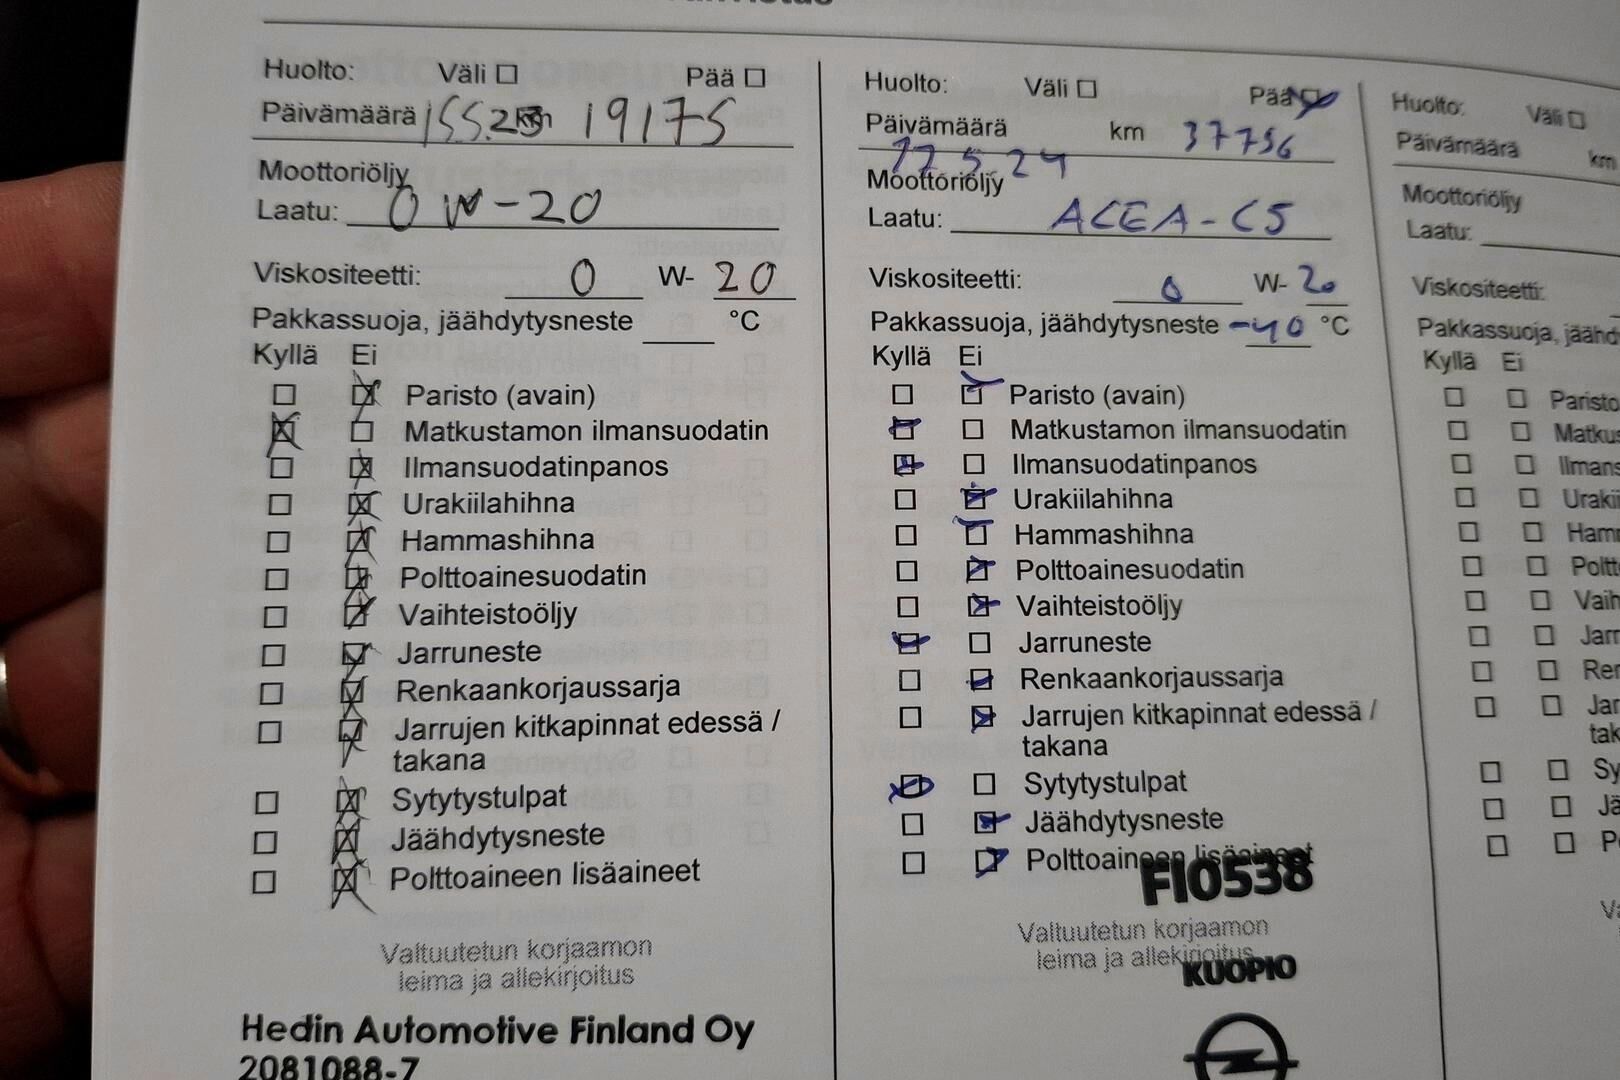 Huolto: Väli Pää
Päivämäärä 15.5.23 km 19175
Moottoriöljy
Laatu: 0W-20
Viskositeetti: 0 W- 20
Pakkassuoja, jäähdytysneste °C
Kyllä Ei
Paristo (avain)
Matkustamon ilmansuodatin
Ilmansuodatinpanos
Urakiilahihna
Hammashihna
Polttoainesuodatin
Vaihteistoöljy
Jarruneste
Renkaankorjaussarja
Jarrujen kitkapinnat edessä /
takana
Sytytystulpat
Jäähdytysneste
Polttoaineen lisäaineet
Valtuutetun korjaamon
leima ja allekirjoitus
Hedin Automotive Finland Oy
2081088-7
Huolto: Väli Pää
Päivämäärä km 37756
17 5 24
Moottoriöljy
Laatu: ACEA-C5
Viskositeetti: 0 W- 20
Pakkassuoja, jäähdytysneste -40 °C
Kyllä Ei
Paristo (avain)
Matkustamon ilmansuodatin
Ilmansuodatinpanos
Urakiilahihna
Hammashihna
Polttoainesuodatin
Vaihteistoöljy
Jarruneste
Renkaankorjaussarja
Jarrujen kitkapinnat edessä /
takana
Sytytystulpat
Jäähdytysneste
Polttoaineen lisäaineet
FI0538
Valtuutetun korjaamon
leima ja allekirjoitus
KUOPIO
Huolto: Väli
Päivämäärä km
Moottoriöljy
Laatu:
Viskositeetti:
Pakkassuoja, jäähd
Kyllä Ei
Paristo
Matkus
Ilmans
Uraki
Ham
Poltto
Vaih
Jarr
Ren
Jar
tak
Sy
Jä
P